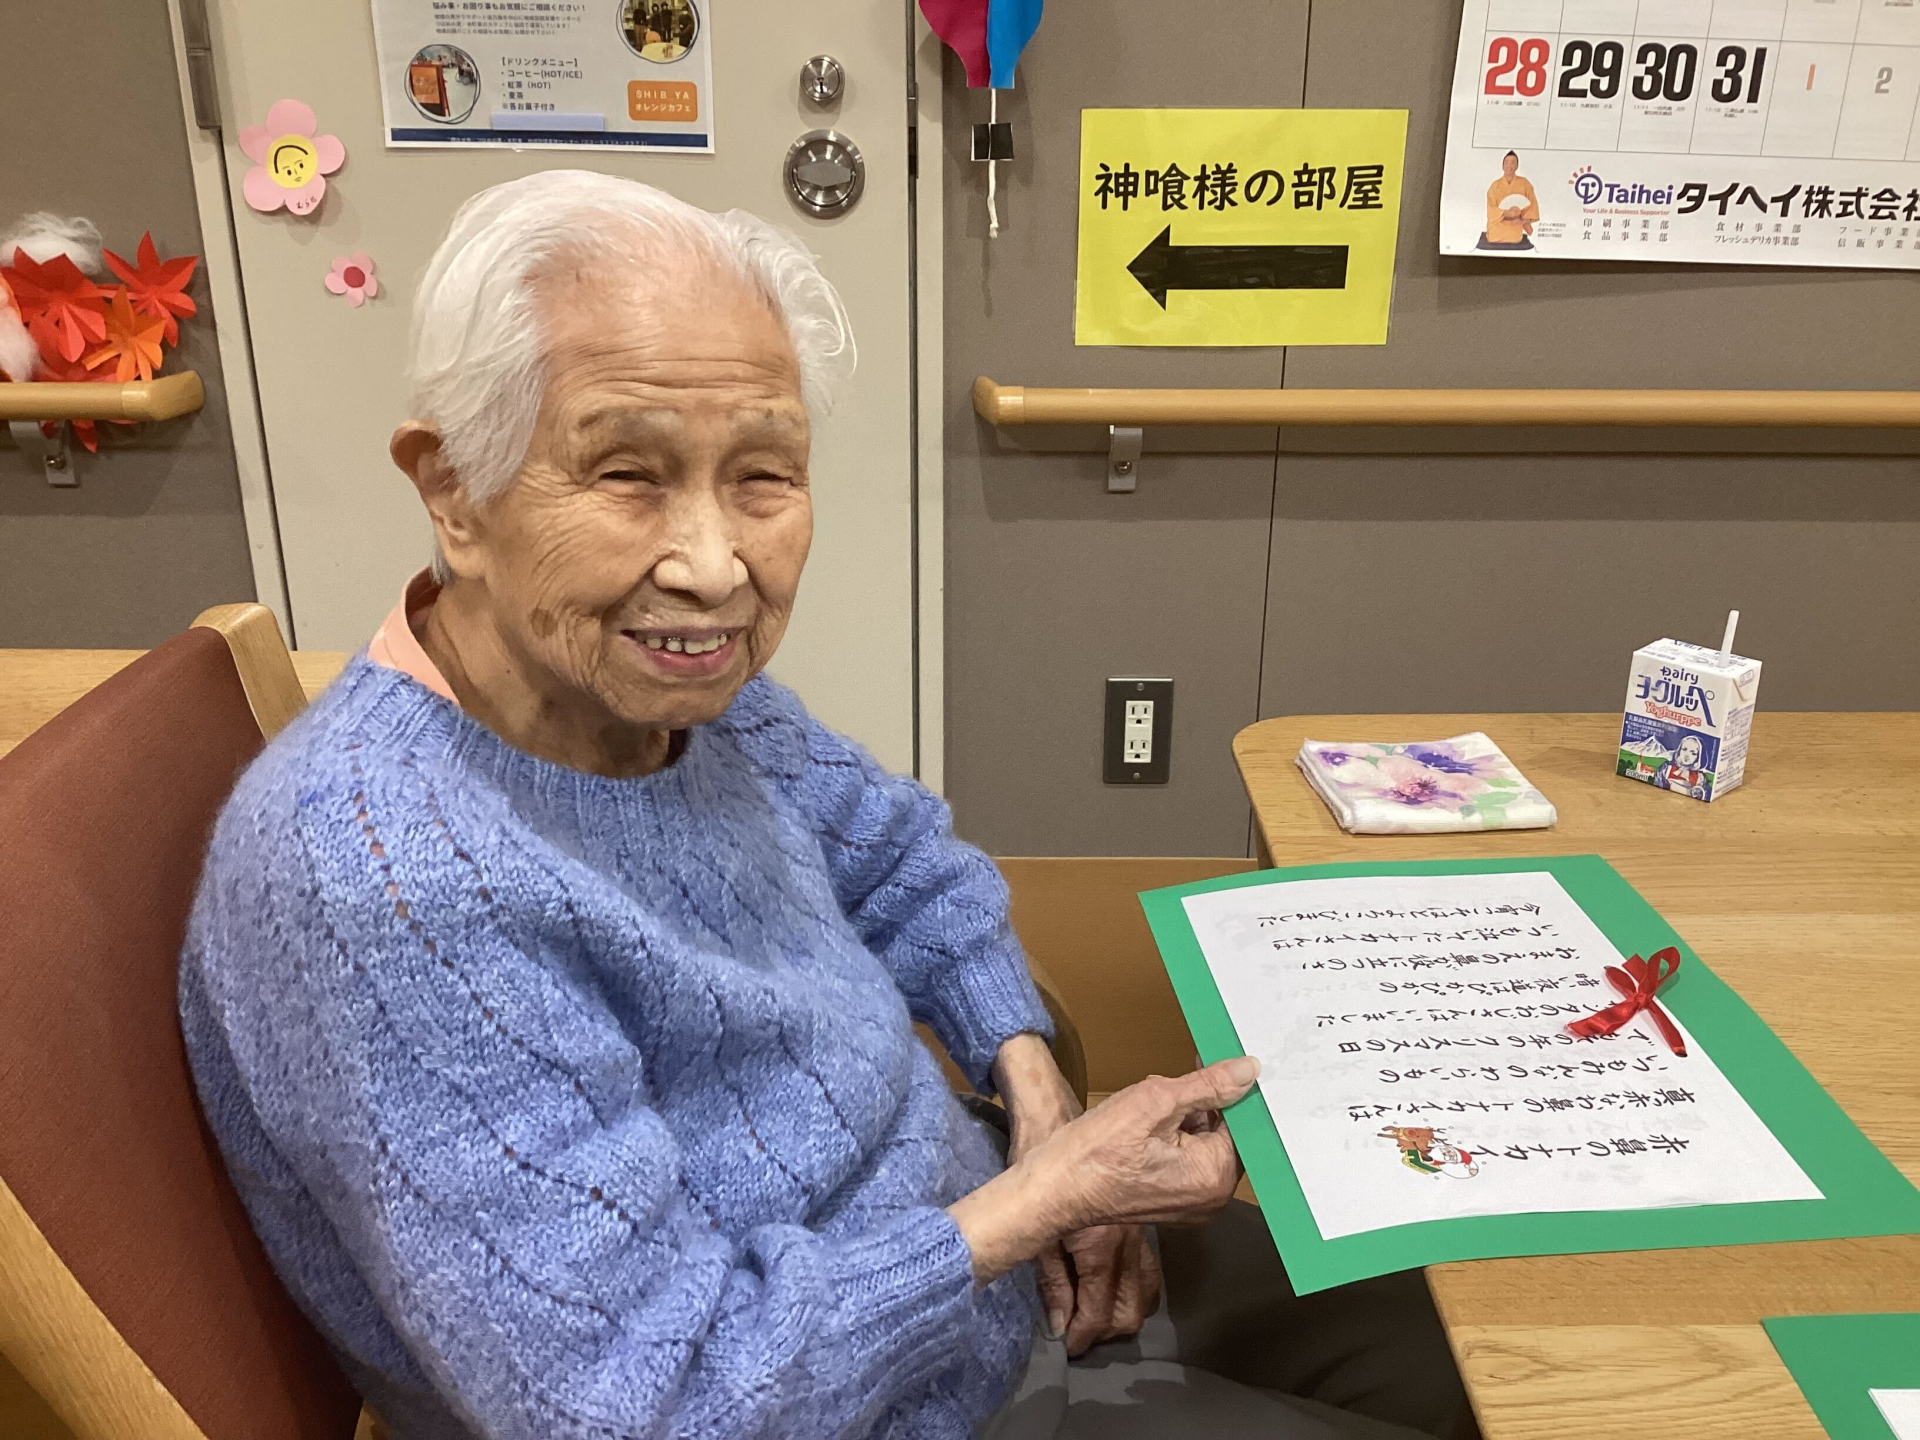 悩み事・お困り事もお気軽にご相談ください！
【ドリンクメニュー】
・コーヒー(HOT/ICE)
・紅茶（HOT）
・麦茶
※各お菓子付き
SHIBUYA
オレンジカフェ
神喰様の部屋
28 29 30 31 1 2
Taihei タイヘイ株式会社
Your Life & Business Supporter
印刷事業部 食材事業部 フード事業
食品事業部 フレッシュデリカ事業部 信販事業
Dairy
ヨーグルッペ
Yoghurppe
赤鼻のトナカイ
真赤なお鼻のトナカイさんは
いつもみんなのわらいもの
でもその年のクリスマスの日
サンタのおじさんはいいました
暗い夜道はぴかぴかの
おまえの鼻が役に立つのさ
いつも泣いてたトナカイさんは
今宵こそはとよろこびました